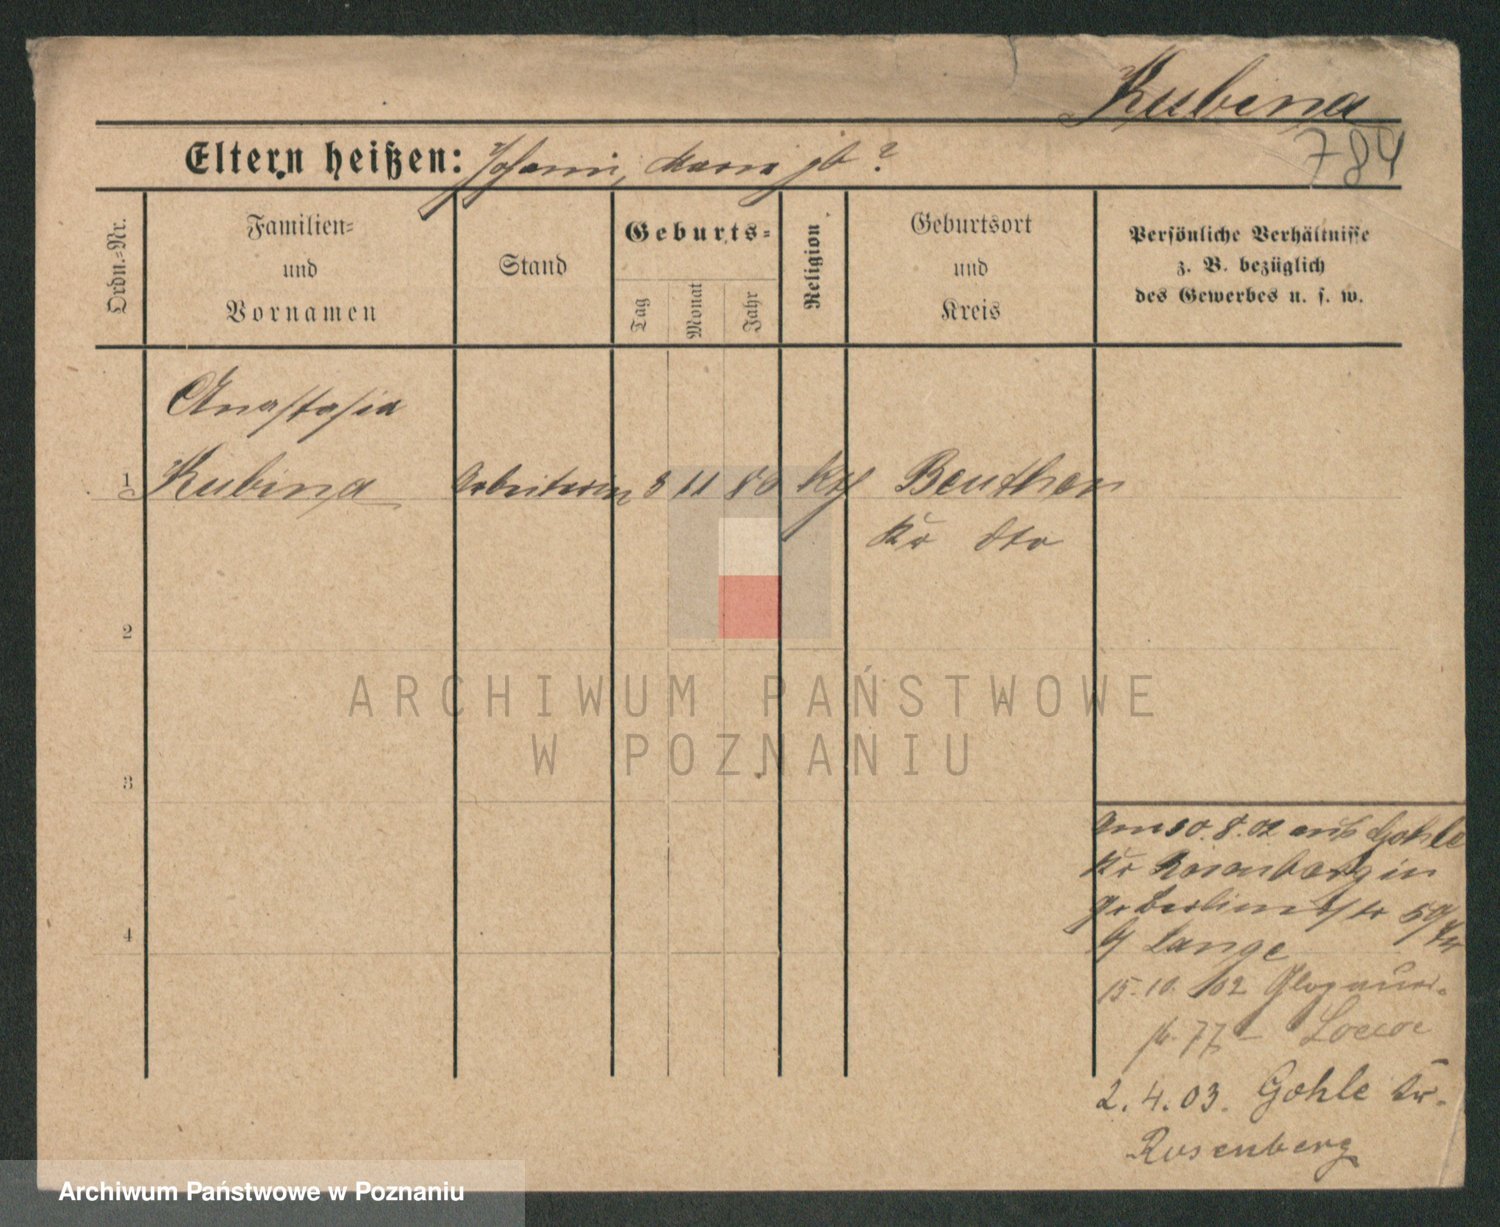 Kubina
784
Eltern heißen: Johann, Maria gb ?
Ordn.-Nr.
Familien-
und
Vornamen
Stand
Geburts-
Tag
Monat
Jahr
Religion
Geburtsort
und
Kreis
Persönliche Verhältnisse
z. B. bezüglich
des Gewerbes u. s. w.
Anastasia
1 Kubina Arbeiterin 8 11 80 kth Beuthen
Kr dto
2
3
4
Am 30.8.02 aus Gohle
Kr Rosenberg in
Gr Berlinerstr 59
b/ Lange
15.10.02 Glogauer-
str. 77
2.4.03. Gohle Kr.
Rosenberg
ARCHIWUM PAŃSTWOWE
W POZNANIU
Archiwum Państwowe w Poznaniu